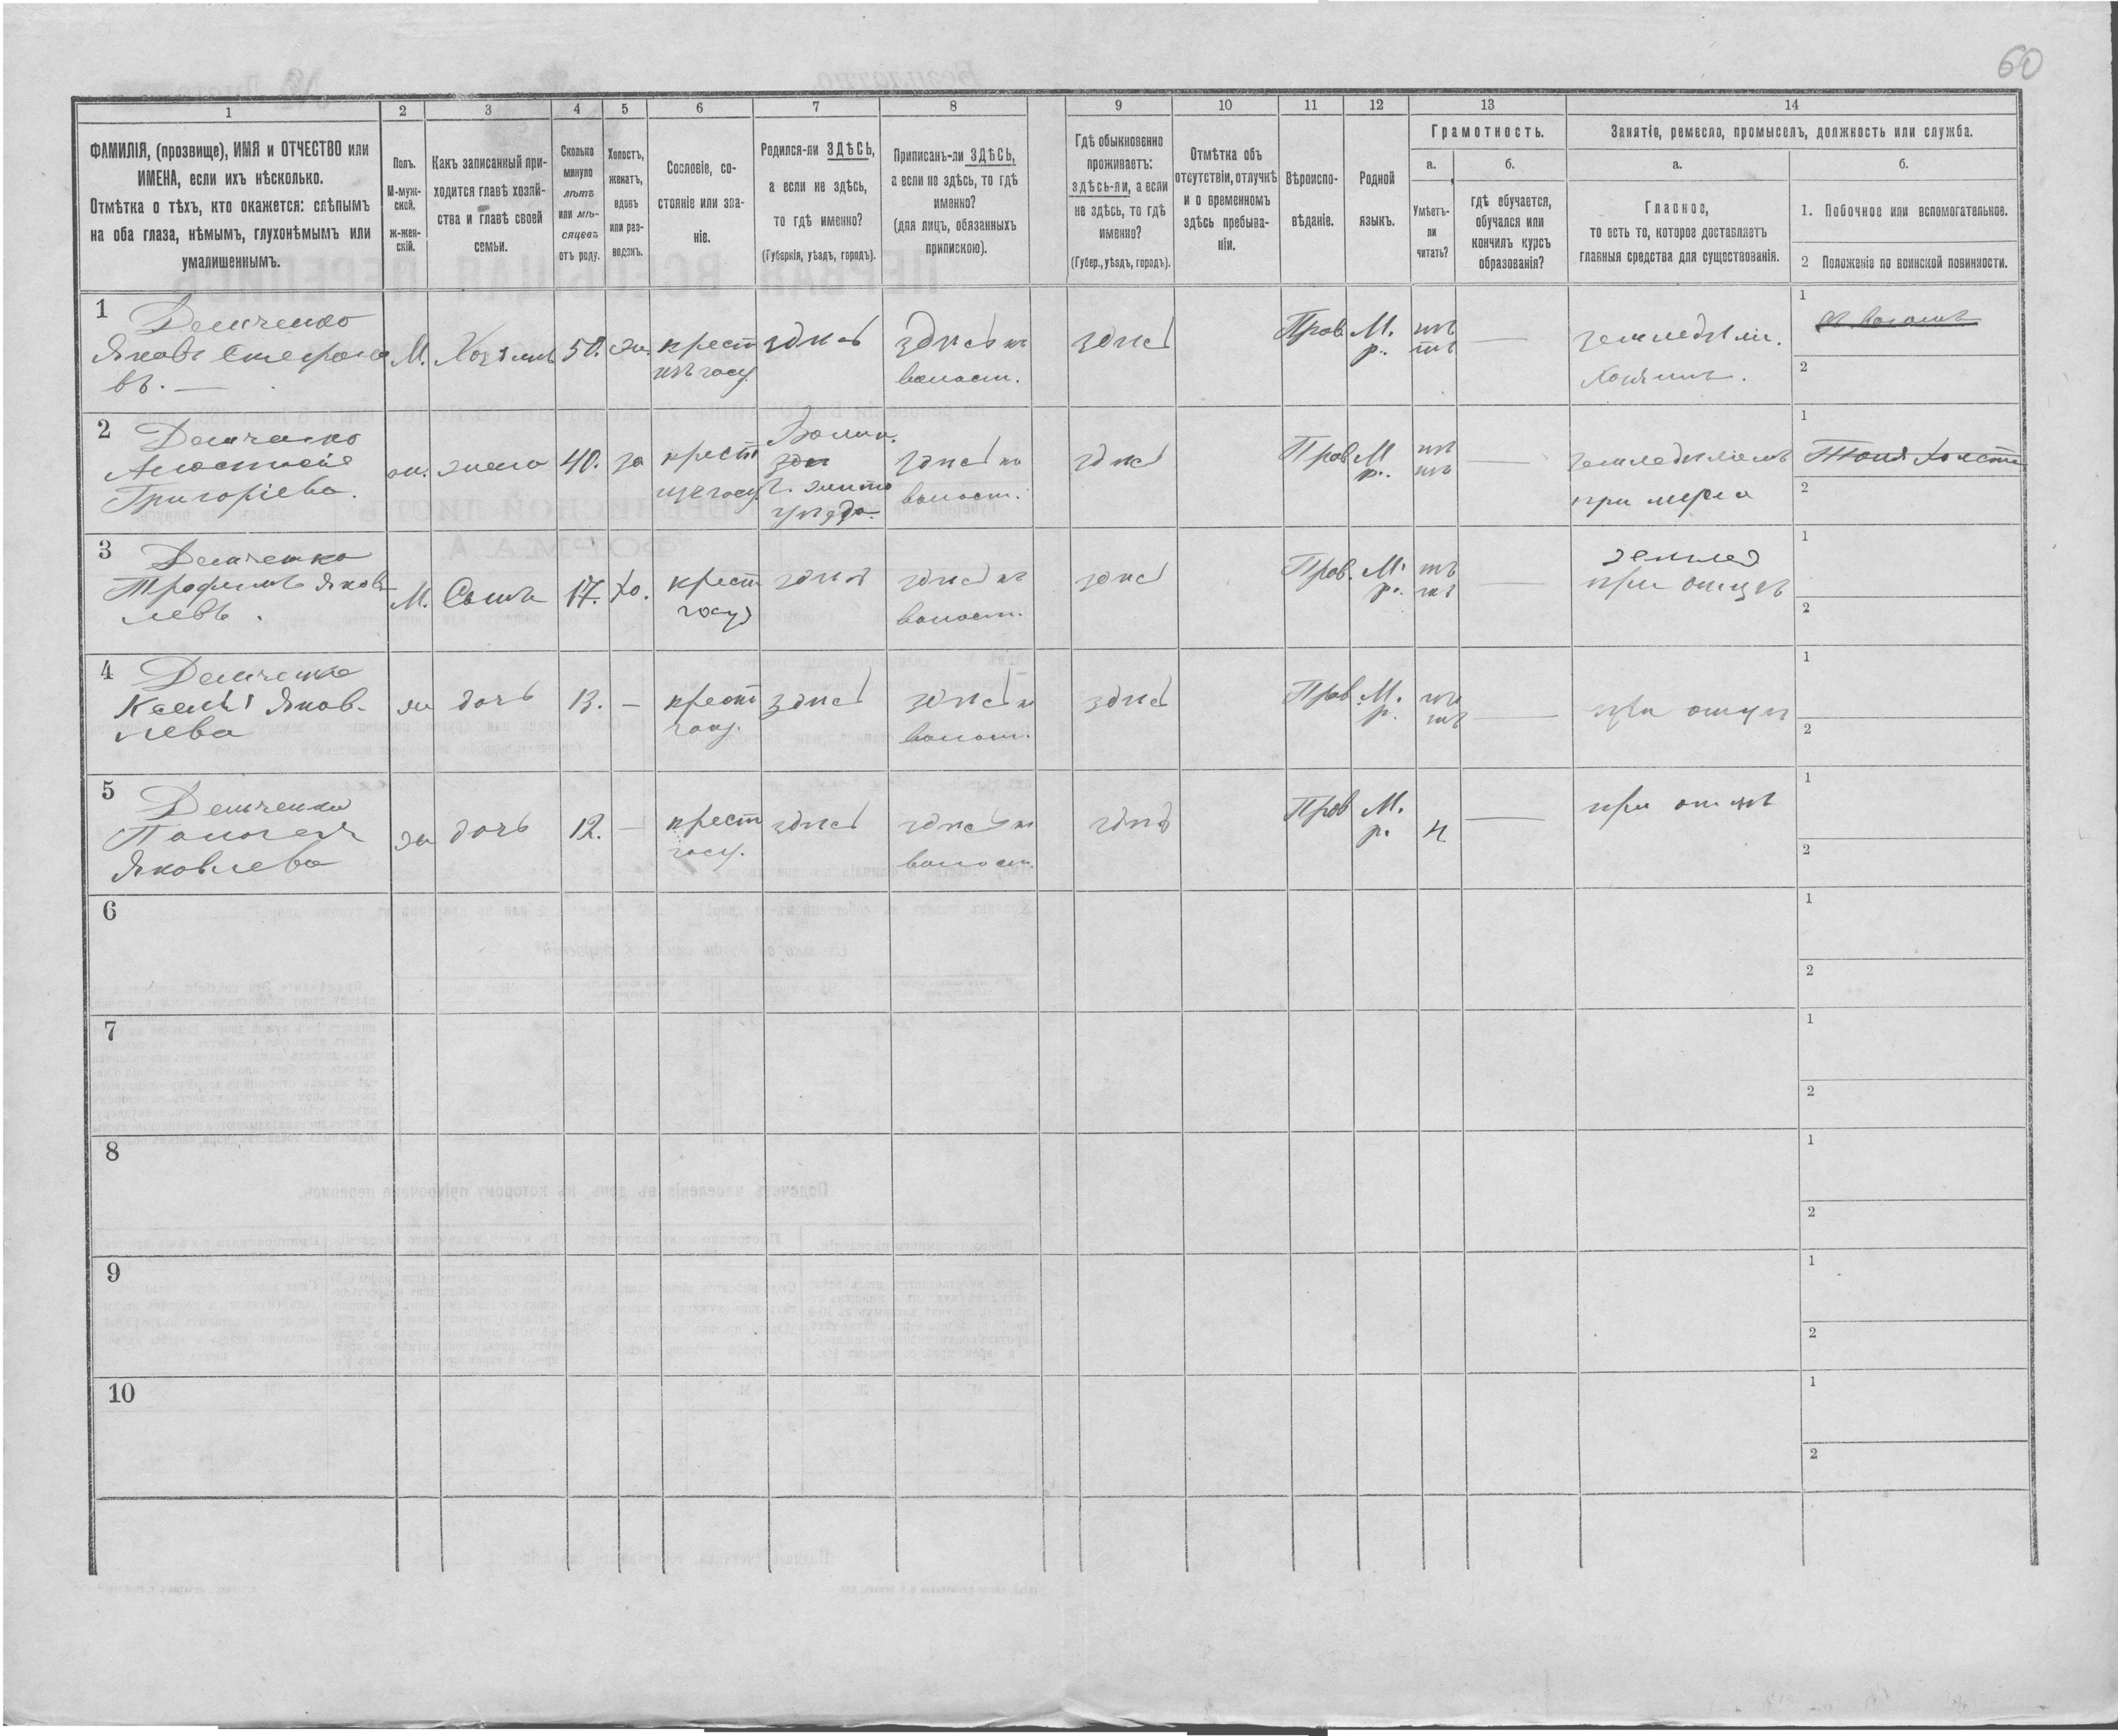 60
1
2
3
4
5
6
7
8
9
10
11
12
13
14
ФАМИЛІЯ, (прозвище), ИМЯ и ОТЧЕСТВО или
ИМЕНА, если ихъ нѣсколько.
Отмѣтка о тѣхъ, кто окажется: слѣпымъ
на оба глаза, нѣмымъ, глухонѣмымъ или
умалишеннымъ.
Полъ.
М-муж-
ской.
ж-жен-
скій.
Какъ записанный при-
ходится главѣ хозяй-
ства и главѣ своей
семьи.
Сколько
минуло
лѣтъ
или мѣ-
сяцевъ
отъ роду.
Холостъ,
женатъ,
вдовъ
или раз-
веденъ.
Сословіе, со-
стояніе или зва-
ніе.
Родился-ли ЗДѢСЬ,
а если не здѣсь,
то гдѣ именно?
(Губернія, уѣздъ, городъ).
Приписанъ-ли ЗДѢСЬ,
а если не здѣсь, то гдѣ
именно?
(для лицъ, обязанныхъ
припискою).
Гдѣ обыкновенно
проживаетъ:
здѣсь-ли, а если
не здѣсь, то гдѣ
именно?
(Губер., уѣздъ, городъ).
Отмѣтка объ
отсутствіи, отлучкѣ
и о временномъ
здѣсь пребыва-
ніи.
Вѣроиспо-
вѣданіе.
Родной
языкъ.
Грамотность.
а.
Умѣетъ-
ли
читать?
б.
гдѣ обучается,
обучался или
кончилъ курсъ
образованія?
Занятіе, ремесло, промыселъ, должность или служба.
а.
Главное,
то есть то, которое доставляетъ
главныя средства для существованія.
б.
1. Побочное или вспомогательное.
2 Положеніе по воинской повинности.
1
Демченко
Яковъ Стефано
въ. —
М.
Хозяинъ
50.
жн.
крест
изъ госу.
здѣсь
здѣсь къ
волост.
здѣсь
Прав.
М.
р.
нѣ
тъ
—
земледѣліе.
Хозяинъ.
1
2
2
Демченко
Анастасія
Григоріева.
ж.
жена
40.
за
крест
изъ госу.
Волын.
г. Жито
уѣзда.
здѣсь къ
волост.
здѣсь
Прав
М
р.
нѣ
тъ
—
земледѣліемъ
при мужѣ
1
2
3
Демченко
Трофимъ Яков
левъ.
М.
Сынъ
17.
хо.
крест
госуд
здѣсь
здѣсь къ
волост.
здѣсь
Прав.
М.
р.
нѣ
тъ
—
землед
при отцѣ
1
2
4
Демченко
Яков-
лева
ж
дочь
13.
—
крест
госу.
здѣсь
здѣсь къ
волост.
здѣсь
Прав.
М.
р.
нѣ
тъ
—
при отцѣ
1
2
5
Демченко
Яковлева
ж
дочь
12.
—
крест
госу.
здѣсь
здѣсь къ
волост.
здѣсь
Прав
М.
р.
н
—
при отцѣ
1
2
6
1
2
7
1
2
8
1
2
9
1
2
10
1
2